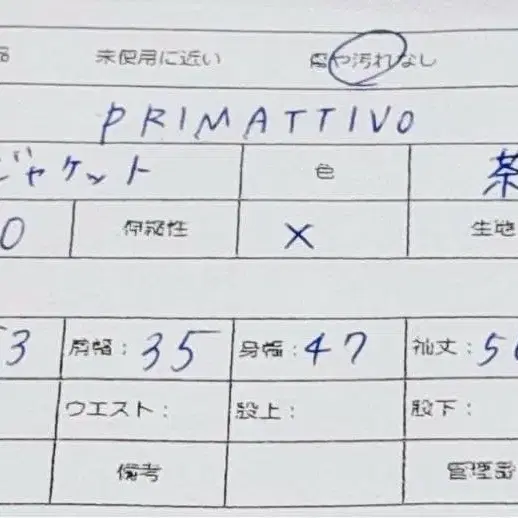 未使用に近い 傷や汚れなし
PRIMATTIVO
ジャケット 色 茶
0 伸縮性 × 生地
3 肩幅: 35 身幅: 47 袖丈: 5
ウエスト: 股上: 股下:
備考 管理番